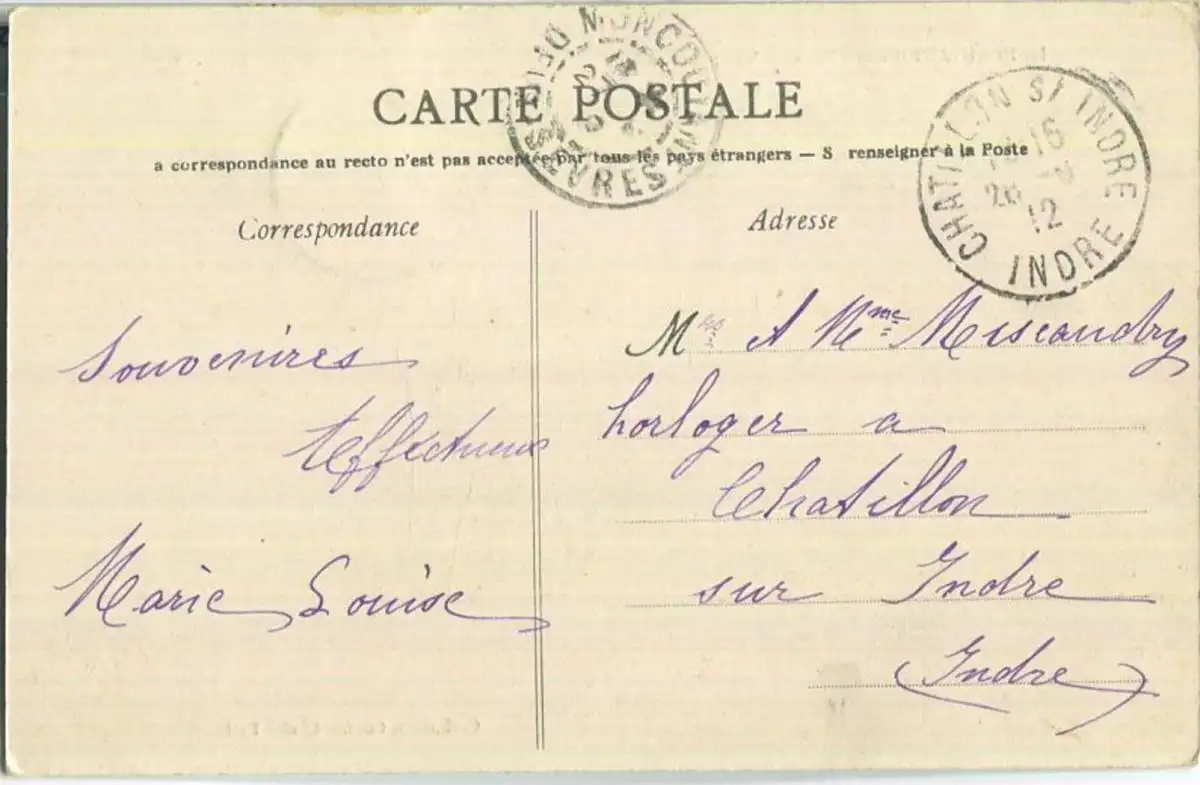 CARTE POSTALE
a correspondance au recto n'est pas acceptée par tous les pays étrangers — S renseigner à la Poste
Correspondance
Adresse
CHATILLON S/ INDRE
16
26
12
INDRE
MONCOU
SÈVRES
Souvenires
Marie Louise
M A Mme
horloger a
Chatillon
sur Indre
(Indre)